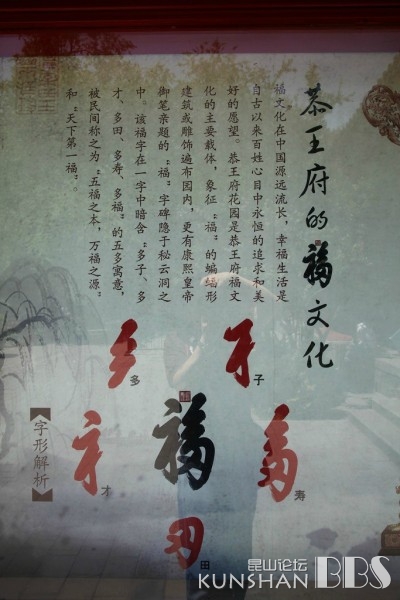 恭王府的福文化
福文化在中国源远流长，幸福生活是
自古以来百姓心目中永恒的追求和美
好的愿望。恭王府花园是恭王府福文
化的主要载体，象征“福”的蝙蝠形
建筑或雕饰遍布园内，更有康熙皇帝
御笔亲题的“福”字碑隐于秘云洞之
中。该福字在一字中暗含“多子、多
才、多田、多寿、多福”的五多寓意，
被民间称之为“五福之本，万福之源”
和“天下第一福”。
多
子
福
才
寿
田
【字形解析】
昆山论坛
KUNSHAN BBS